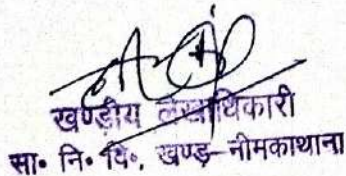 खण्डीय लेखाधिकारी
सा॰ नि॰ वि॰, खण्ड-नीमकाथाना